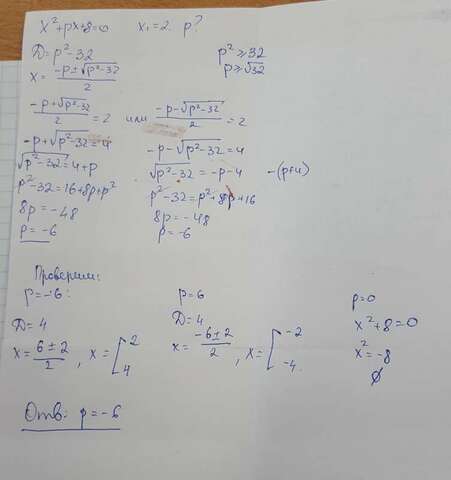 x²+px+8=0    x₁=2.  p?
D=p²-32    p²≥32
x=(-p±√(p²-32))/2    p≥√32
(-p+√(p²-32))/2=2  или  (-p-√(p²-32))/2=2
-p+√(p²-32)=4    -p-√(p²-32)=4
√(p²-32)=4+p    √(p²-32)=-p-4    -(p+4)
p²-32=16+8p+p²    p²-32=p²+8p+16
8p=-48    8p=-48
p=-6    p=-6
Проверим:
p=-6:    p=6    p=0
D=4    D=4    x²+8=0
x=(6±2)/2, x=[2 4    x=(-6±2)/2, x=[-2 -4.    x²=-8
∅
Отв: p=-6